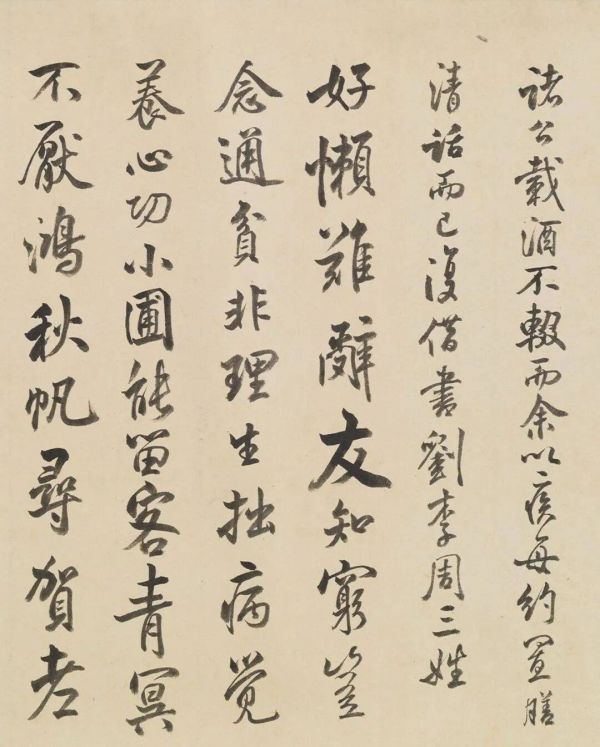 諸公載酒不輟而余以疾每約置膳
清話而已復借書劉李周三姓
好懶難辭友知窮豈
念通貧非理生拙病覺
養心功小圃能留客青冥
不厭鴻秋帆尋賀老